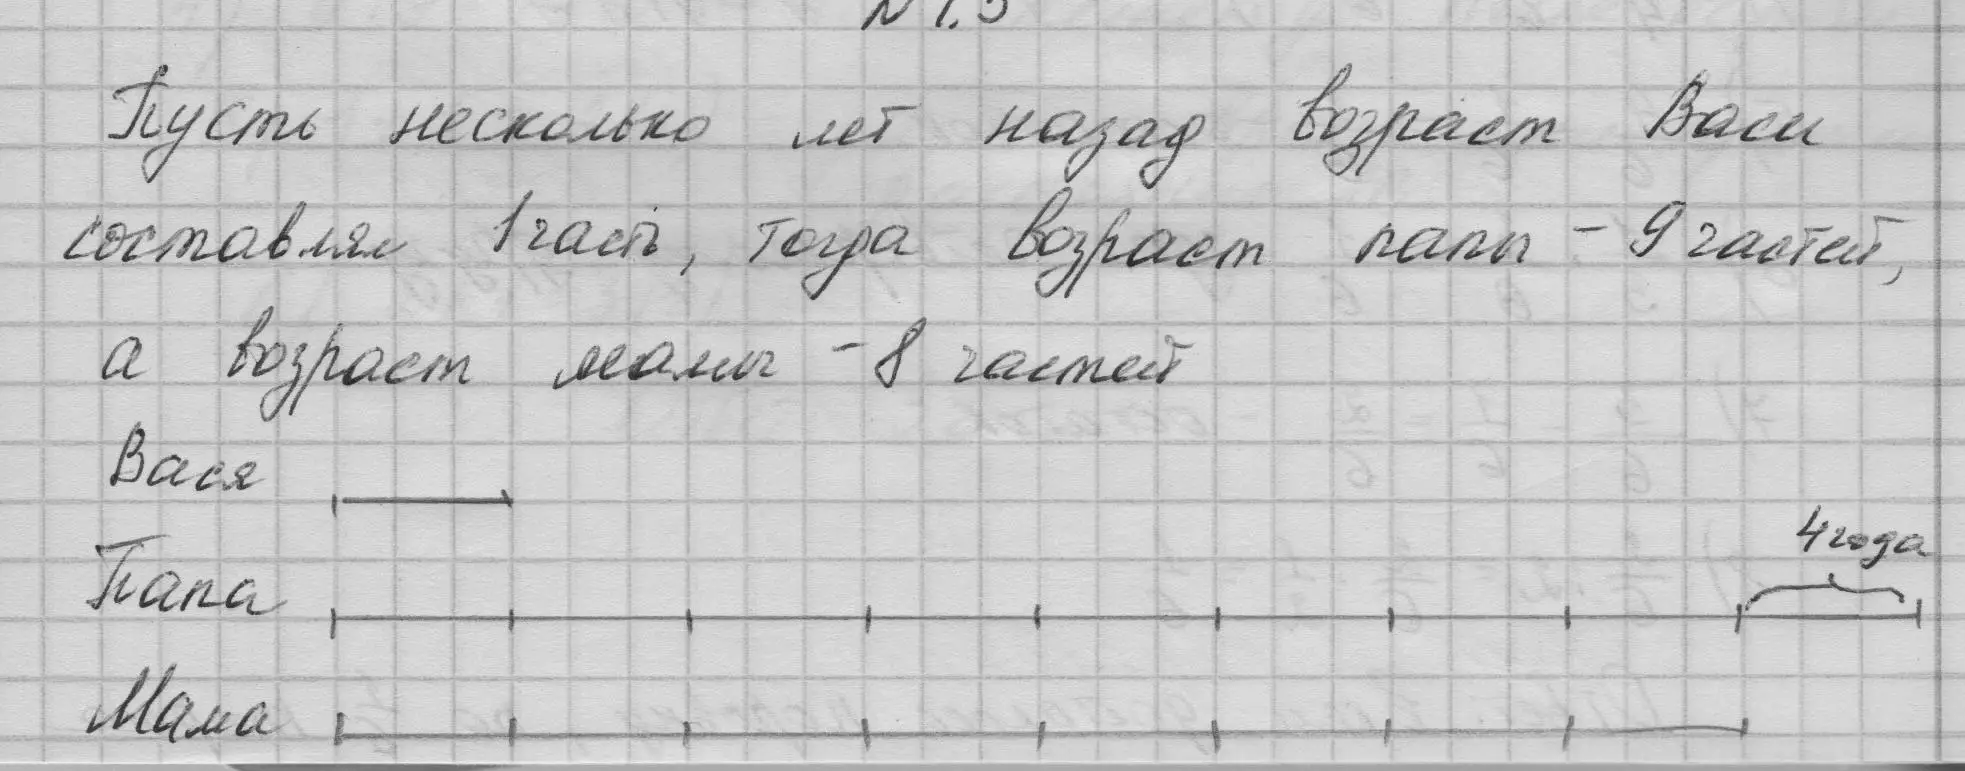 № 1.3
Пусть несколько лет назад возраст Васи
составлял 1 часть, тогда возраст папы - 9 частей,
а возраст мамы - 8 частей
Вася
4 года
Папа
Мама